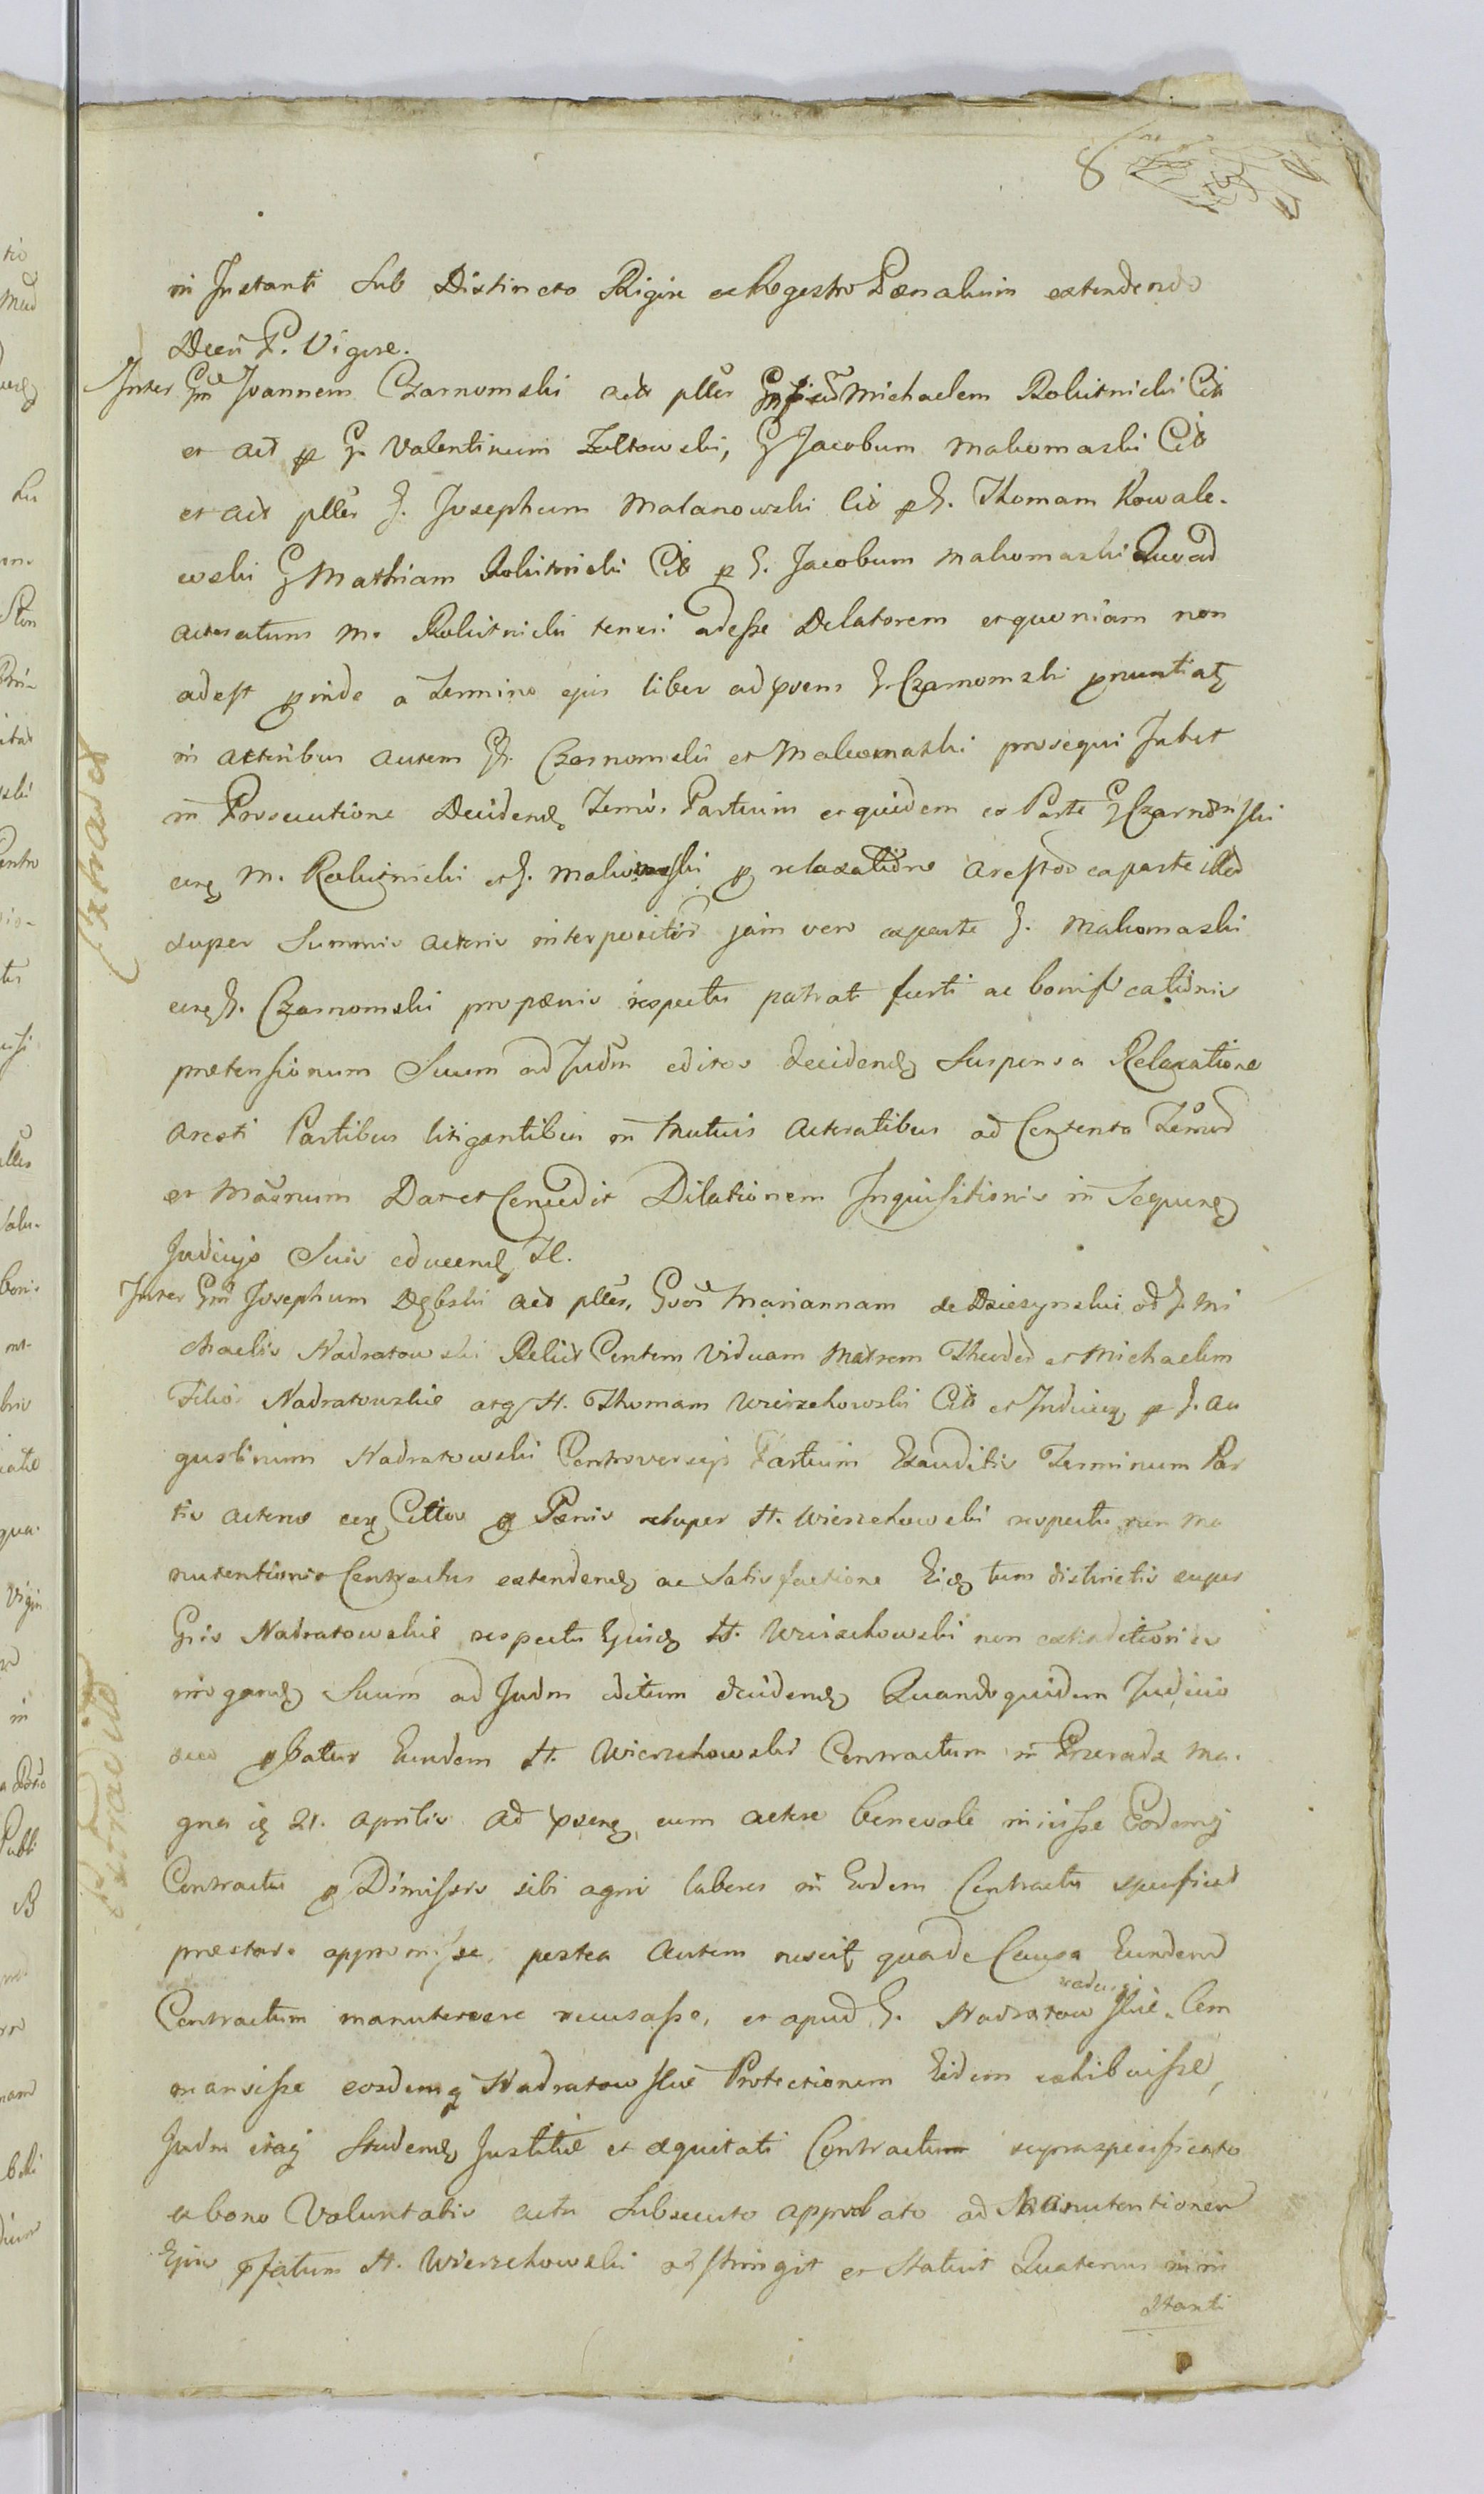 8
in Instanti Sub Distincto Rigore ex Regestro Pænalium extendendo
Decti P. Vigore.
Inter Gm Joannem Czarnomski act pller Michaelem Rokitnicki Cit
et act p G. Valentinum Zoltowski, G Jacobum Makomaski Cit
et act pller G. Josephum Malanowski Cit p G. Thomam Kowale-
wski G Mathiam Rokitnicki Cit p G. Jacobum Makomaski Quoad
actoratum M. Rokitnicki teneri adesse Delatorem et quoniam non
adest proinde a Termino ejus liber ad prsens G. Czarnomski pnuntiat
in actoribus autem G. Czarnomski et Makomaski prosequi Jubet
in Prosecutione Decidend Termi. Partium et quidem ex Parte G Czarnomski
erg M. Rokitnicki et G. Makomaski p relaxatione Arestor ex parte illor
super Summis actoris interpositor jam vero ex parte G. Makomaski
erg G. Czarnomski pro pænis respectu patrati furti ac bonificationis
prætensionum Suum ad Judm editos decidend Suspensa Relaxatione
Aresti Partibus litigantibus in Mutuis Actoratibus ad Contenta Termor
et Dat et Concedit Dilationem Inquisitionis in Sequen
Judicijs Suis educend H.
Inter Gm Josephum Dębski act pller, Gsos Mariannam de Dziezynskie od G. Mi
chaelis Nadratowski Relict Contem Viduam Matrem Theodor et Michaelem
Filios Nadratowskie atq H. Thomam Wierzchowski Cit et Inducen p G. Au
gustinum Nadratowski Controversijs Partium Exauditis Terminum Par
tis actoræ erg Cittos p Pænis super H. Wierzchowski respectu non ma
nutentionis Contractus extendend ac Satisfactione Eid tum districtis super
Gris Nadratowskie respectu Ejusd H. Wierzchowski non extraditionis
irrogand Suum ad Judm editum decidend Quandoquidem Judicio
suo pbatur Eundem H. Wierzchowski Contractum in Przerada Ma-
gna 21. Aprilis Ad prsens cum actore benevole iniisse Eodemq
Contractu p Dimissis sibi agris labores in Eodem Contractu specificat
præstare appromisse, postea Autem nescit qua de Causa Eundem
Contractum manutenere recusasse, et apud G. Nadratowskie Com
mansisse eosdemq Nadratowskie Protectionem Eidem exhibuisse,
Judm itaq Studend Justitiæ et æquitati Contractum supraspecificato
ex bono Voluntatis actu Subsecuto approbato ad Manutentionem
Ejus pfatum H. Wierzchowski adstringit et Statuit Quatenus in in
stanti
Extractt
Extradit